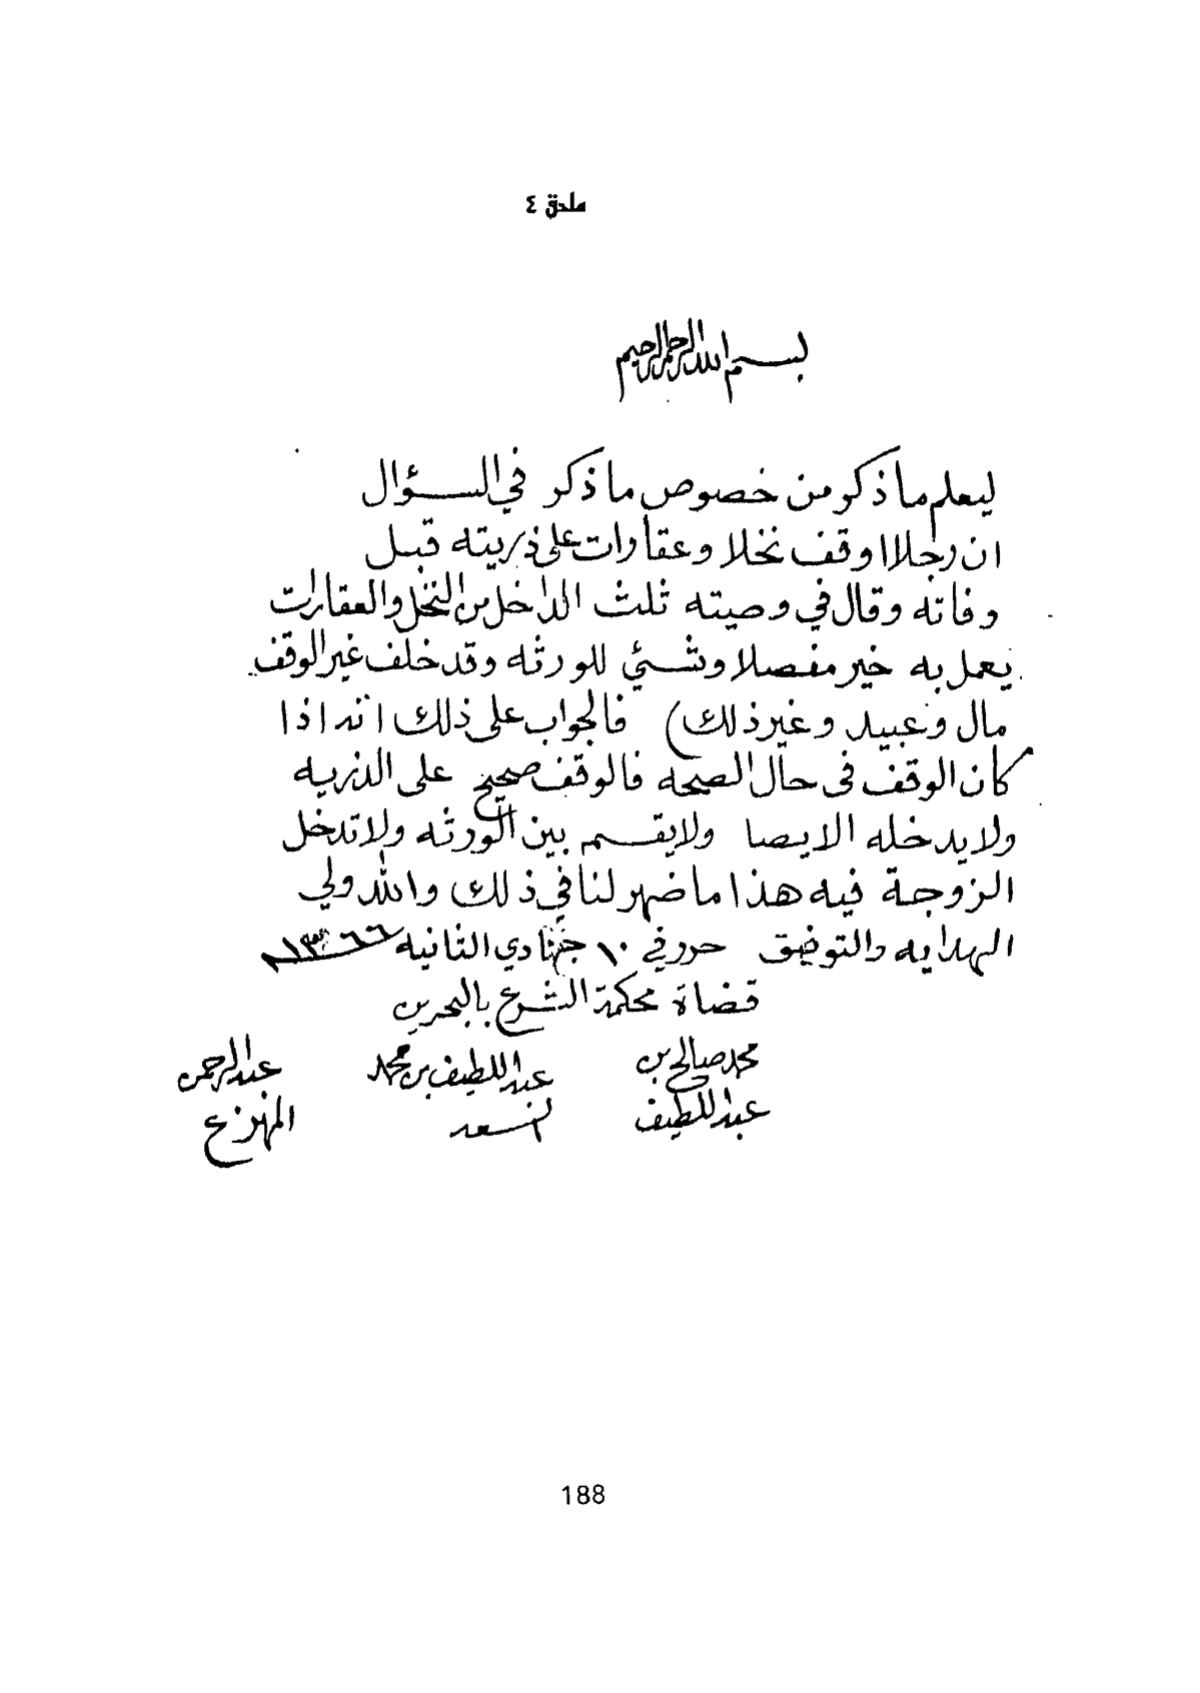 ملحق ٤
بسم الله الرحمن الرحيم
ليعلم ما ذكر من خصوص ما ذكر في السؤال
ان رجلا اوقف نخلا وعقارات على ذريته قبل
وفاته وقال في وصيته ثلث الداخل من النخل والعقارات
يعمل به خير مفصلا وشئي للورثه وقد خلف غير الوقف
مال وعبيد وغير ذلك) فالجواب على ذلك انه اذا
كان الوقف في حال الصحه فالوقف صحيح على الذريه
ولا يدخله الايصا ولا يقسم بين الورثه ولا تدخل
الزوجة فيه هذا ما ضهر لنا في ذلك والله ولي
الهدايه والتوفيق حرر في ١٠ جمادي الثانيه ١٣٦٦
قضاة محكمة الشرع بالبحرين
محمد صالح بن عبد اللطيف بن محمد عبد الرحمن
عبد اللطيف السعد المهزع
188